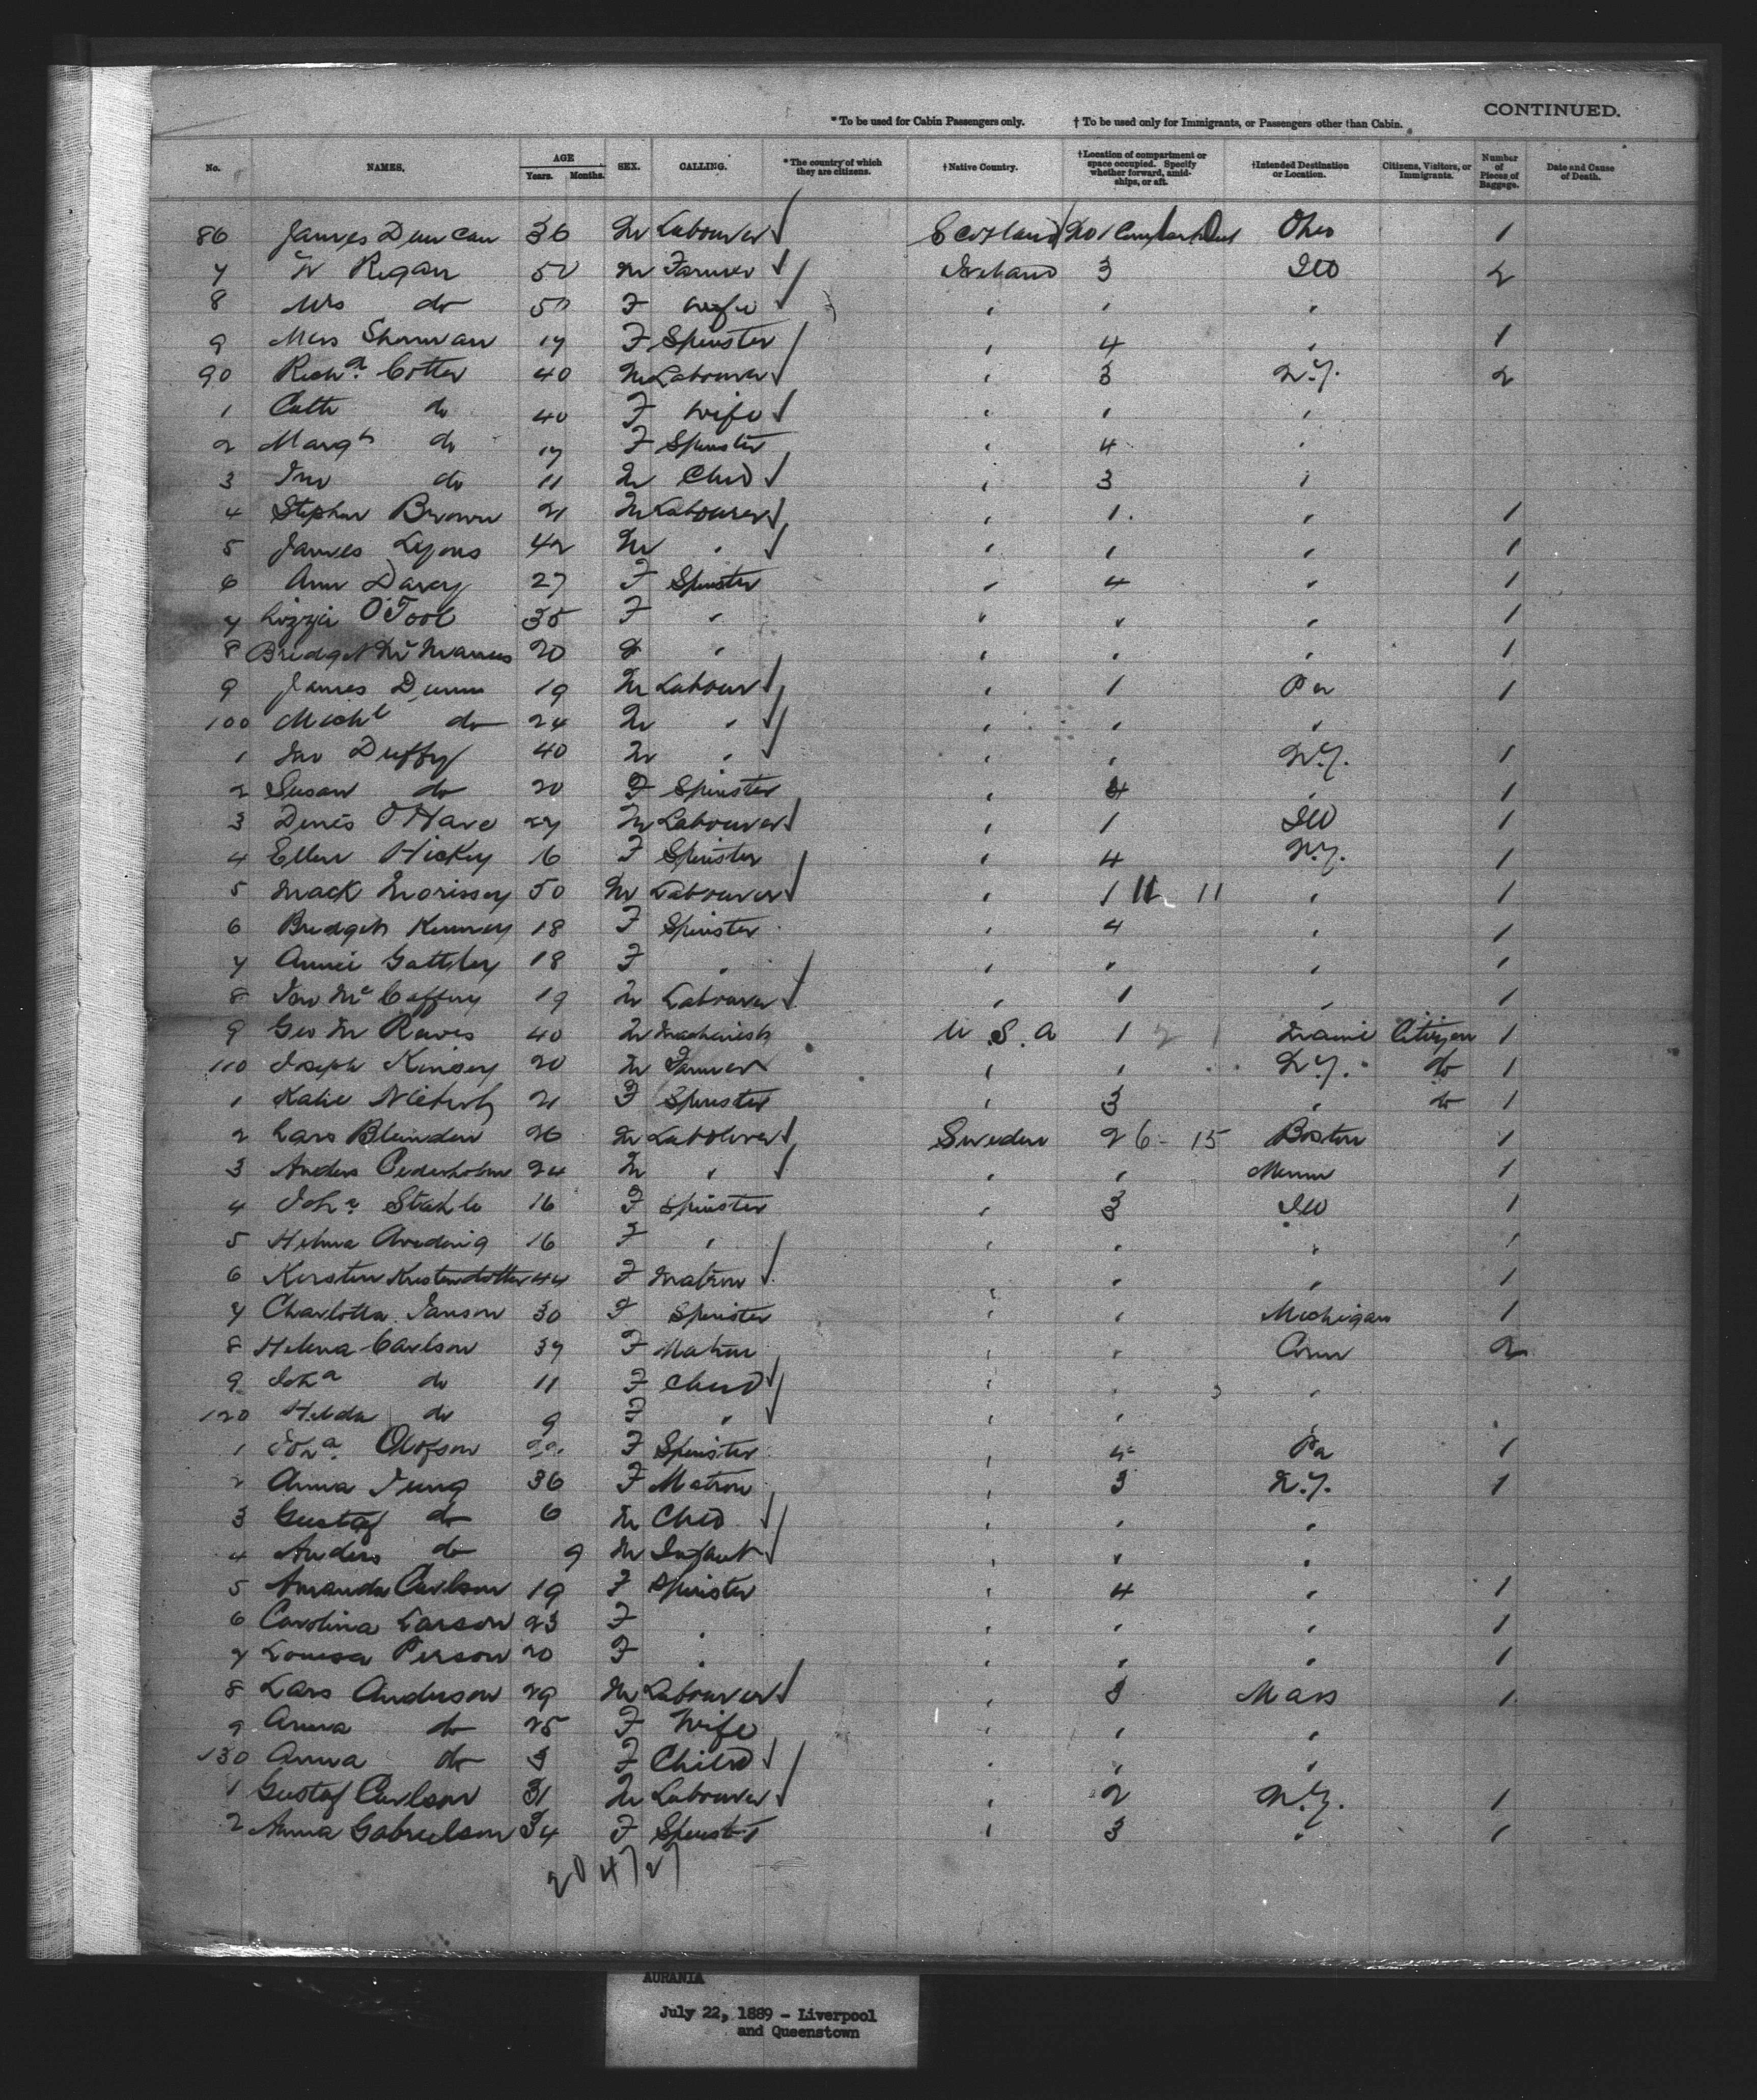 CONTINUED.
* To be used for Cabin Passengers only. † To be used only for Immigrants, or Passengers other than Cabin.
No. NAMES. AGE Years. Months. SEX. CALLING. * The country of which they are citizens. † Native Country. † Location of compartment or space occupied. Specify whether forward, amidships, or aft. † Intended Destination or Location. Citizens, Visitors, or Immigrants. Number of Pieces of Baggage. Date and Cause of Death.
86 James Duncan 36 M Labourer Scotland No 1 Compartment Ohio 1
7 W Regan 50 M Farmer Ireland 3 Ill 2
8 Mrs do 50 F Wife " " "
9 Miss 17 F Spinster " 4 " 1
90 Richd Cotter 40 M Labourer " 3 N.Y. 2
1 Cath do 40 F Wife " " "
2 Margt do 17 F Spinster " 4 "
3 Jno do 11 M Child " 3 "
4 Stephen Brown 21 M Labourer " 1 " 1
5 James Lyons 42 M " " " " 1
6 Ann Darcy 27 F Spinster " 4 " 1
7 Lizzie O'Tool 35 F " " " " 1
8 Bridget McManus 20 F " " " " 1
9 James Dunn 19 M Labour " 1 Pa 1
100 Michl do 24 M " " " "
1 Jno Duffy 40 M " " " N.Y. 1
2 Susan do 20 F Spinster " 4 " 1
3 Denis O'Hare 27 M Labourer " 1 Ill 1
4 Ellen Hickey 16 F Spinster " 4 N.Y. 1
5 Mack Morissey 50 M Labourer " 1 11 " 1
6 Bridget 18 F Spinster " 4 " 1
7 Annie 18 F " " " " 1
8 Jno McCaffery 19 M Labourer " 1 " 1
9 Geo M 40 M Machinest U.S.A 1 2 1 Maine Citizen 1
110 Joseph Kinsey 20 M Farmer " " N.Y. do 1
1 Katie 21 F Spinster " 3 " do 1
2 Lars 26 M Labourer Sweden 2 6 - 15 Boston 1
3 Anders Cederholm 24 M " " " Minn 1
4 Joha Strahle 16 F Spinster " 3 Ill 1
5 16 F " " " " 1
6 Kersten 44 F Matron " " " 1
7 Charlotta Janson 30 F Spinster " " Michigan 1
8 Helena Carlson 37 F Matron " " Conn 2
9 Joha do 11 F Child " " "
120 Hilda do 9 F " " " "
1 Joha Olofson F Spinster " 4 Pa 1
2 Anna Jung 36 F Matron " 3 N.Y. 1
3 Gustaf do 6 M Child " " "
4 Anders do 9 M Infant " " "
5 Amanda Carlson 19 F Spinster " 4 " 1
6 Carolina Larson 23 F " " " " 1
7 Louisa Person 20 F " " " " 1
8 Lars Anderson 29 M Labourer " 3 Mass 1
9 Anna do 25 F Wife " " "
130 Anna do 3 F Child " " "
1 Gustaf Carlson 31 M Labourer " 2 N.Y. 1
2 Anna Gabrielson 34 F Spinst " 3 " 1
AURANIA
July 22, 1889 - Liverpool
and Queenstown